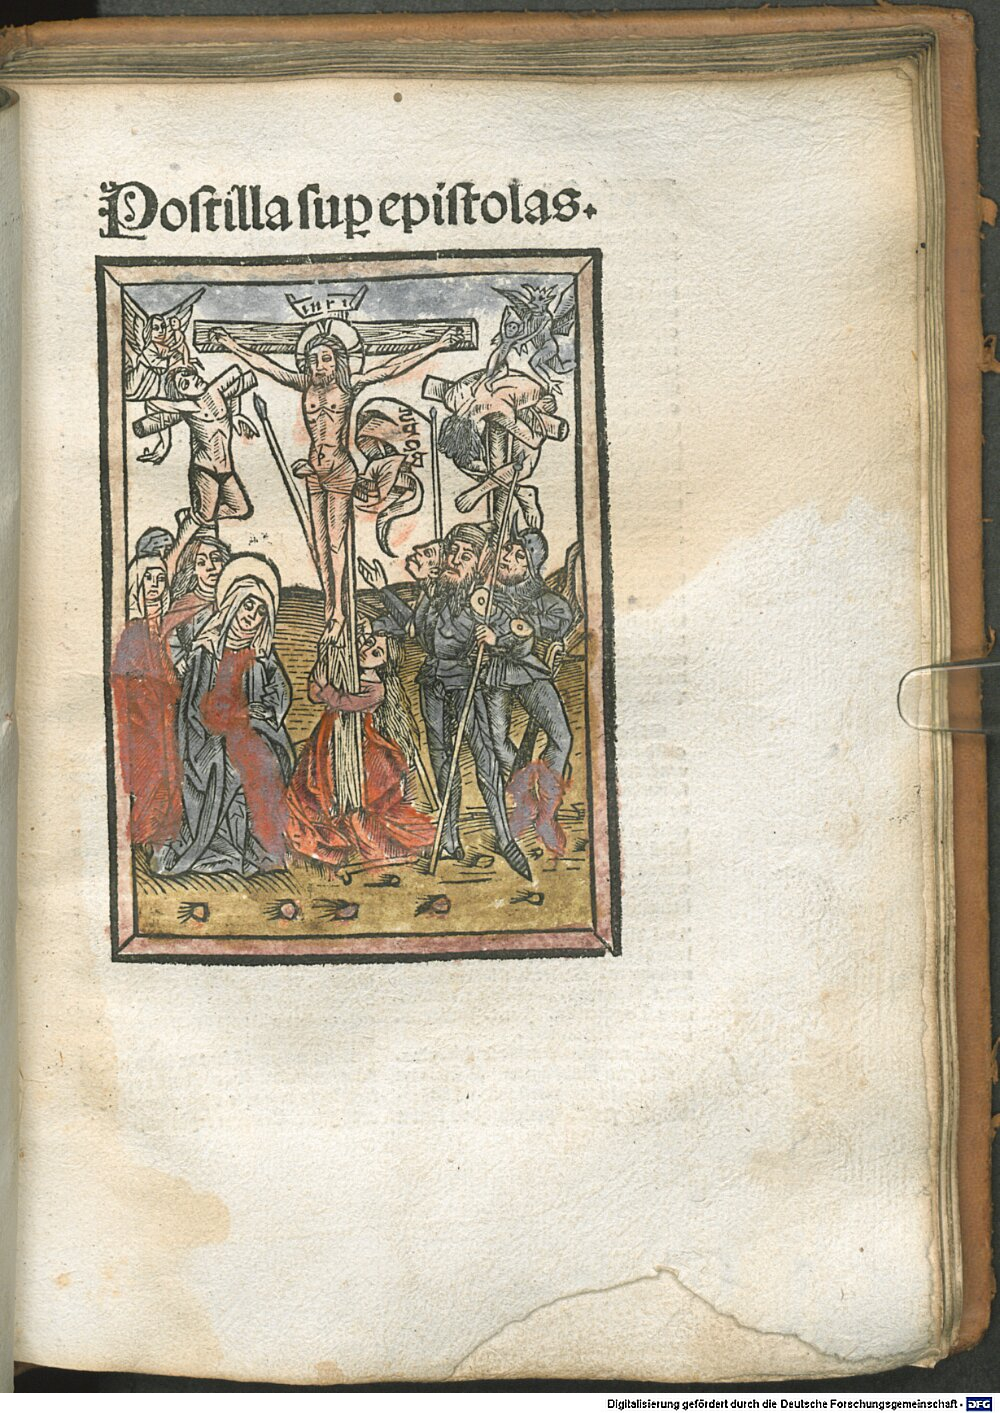 Postilla sup epistolas.
inri
Digitalisierung gefördert durch die Deutsche Forschungsgemeinschaft - DFG